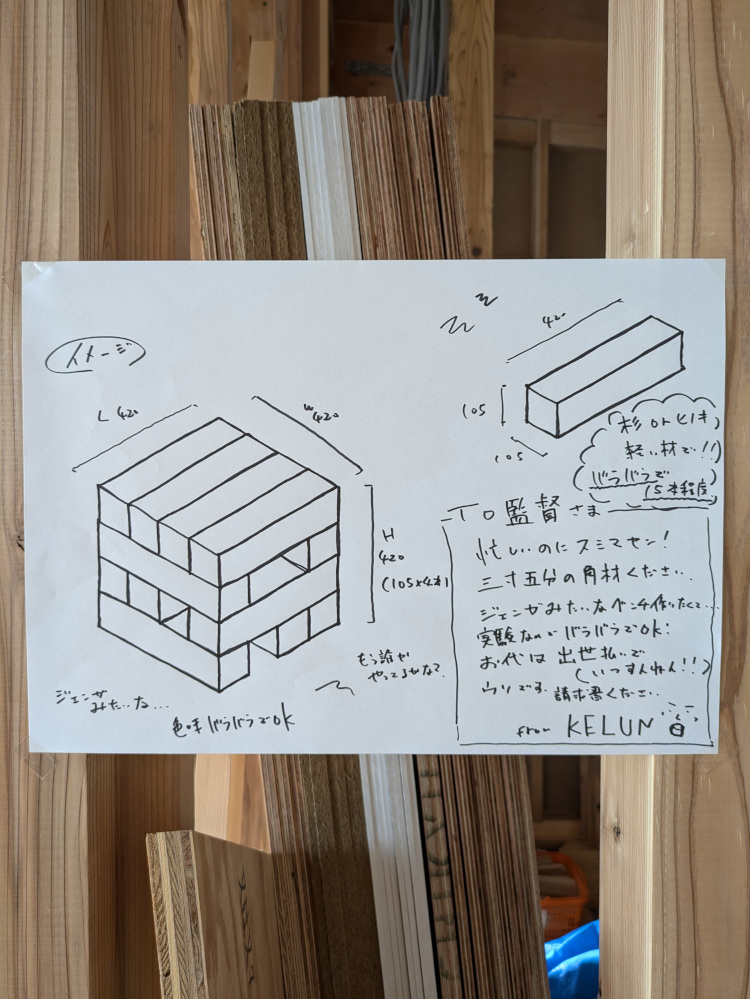 イメージ
L 420
W 420
H
420
(105×4本)
ジェンガ
みたいな…
色味バラバラでOK
もう誰か
やってるかな?
420
105
105
杉 or ヒノキ
軽い材で!!
バラバラで
15本程度
To 監督さま
忙しいのにスミマセン!
三寸五分の角材ください…
ジェンガみたいなベンチ作りたくて…
実験なのでバラバラでOK!
お代は出世払いで
(いつすんねん!!)
ウソです。請求書ください…
from KELUN